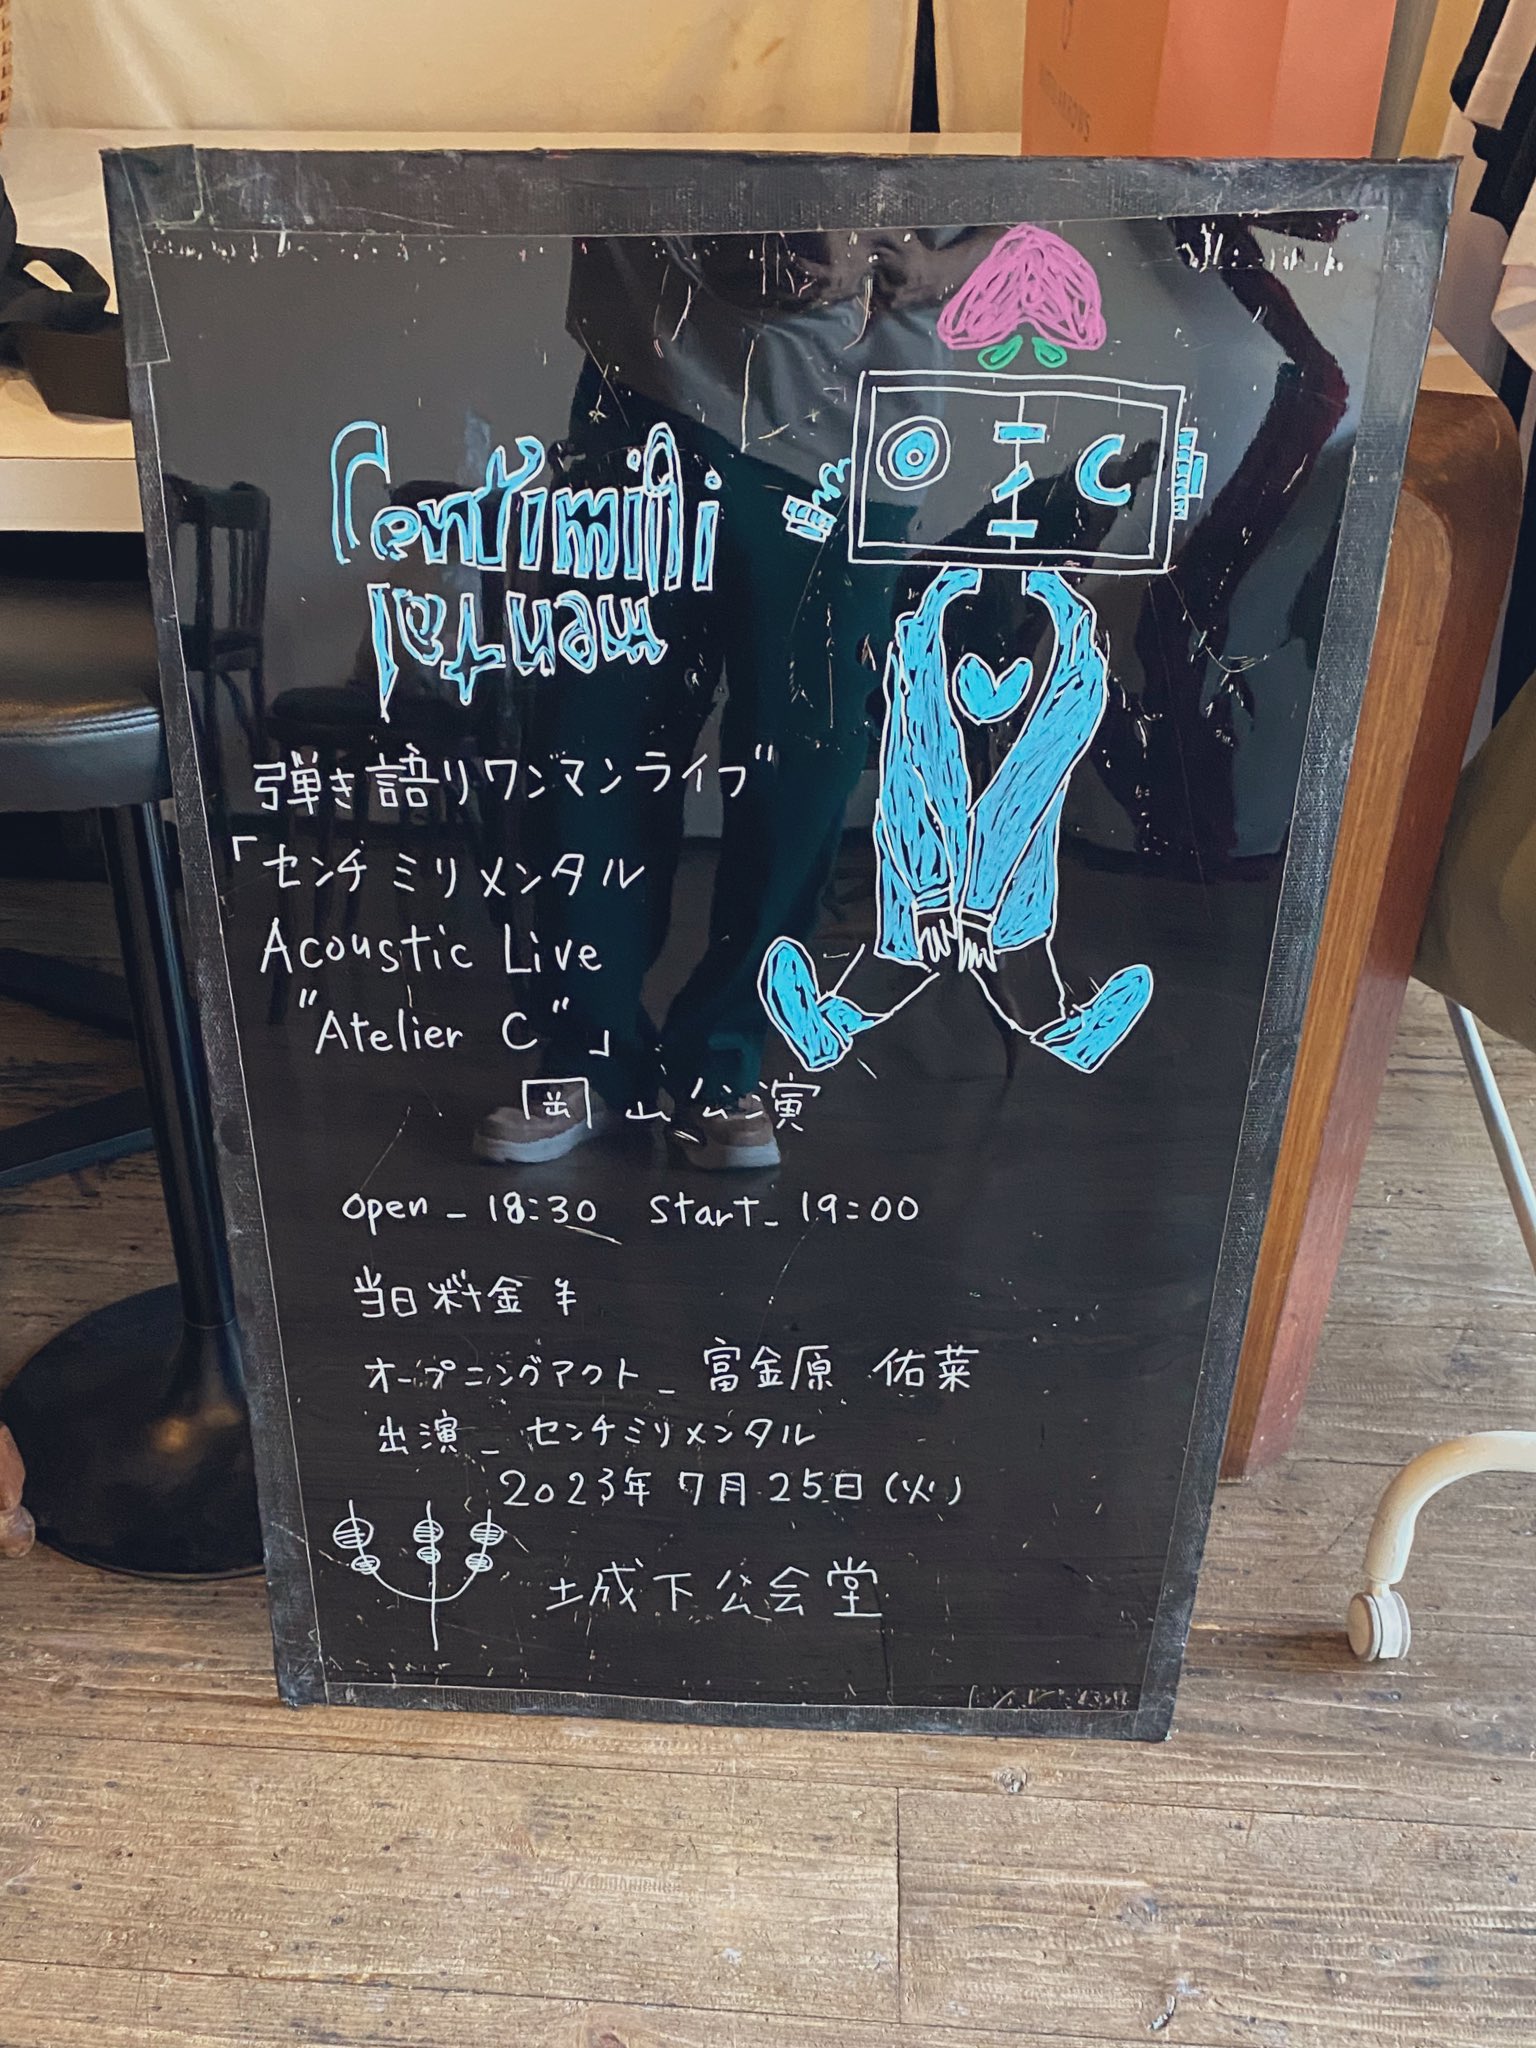 Centimilli
mental
弾き語りワンマンライブ
「センチミリメンタル
Acoustic Live
"Atelier C"」
岡山公演
open _ 18:30 start _ 19:00
当日料金 ¥
オープニングアクト _ 富金原 佑菜
出演 _ センチミリメンタル
2023年 7月 25日 (火)
城下公会堂